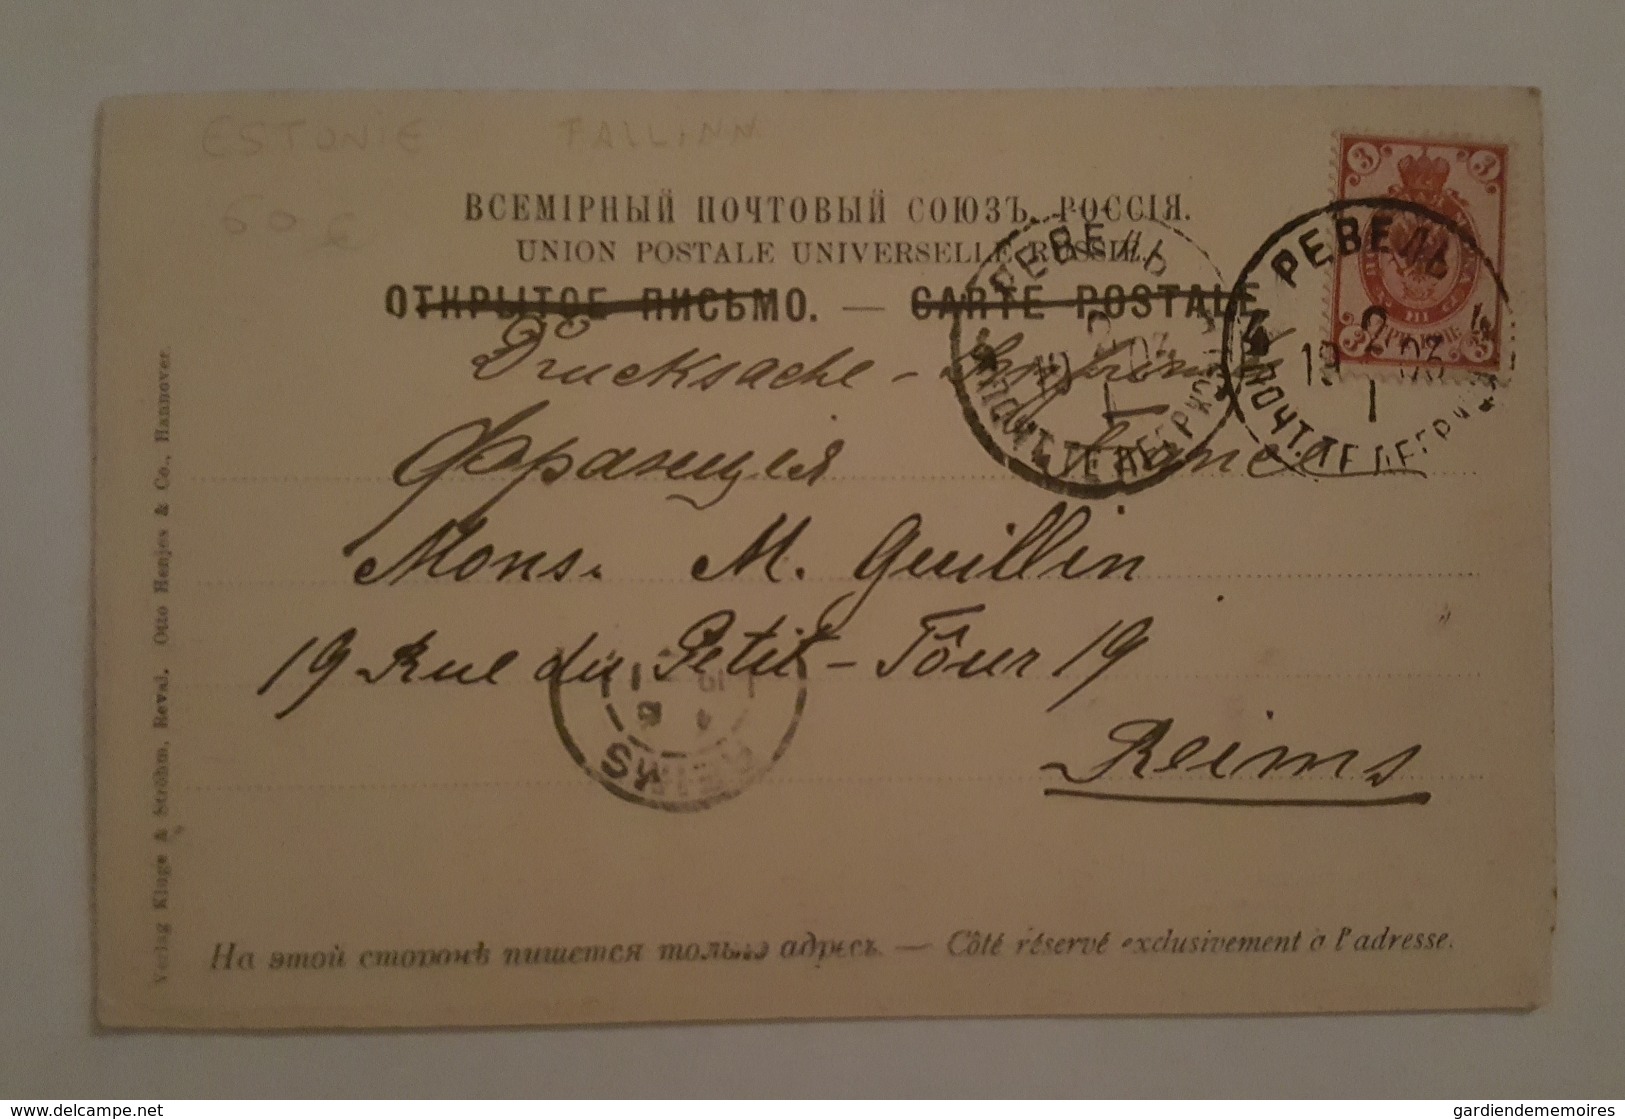 ESTONIE TALLINN
60 €
ВСЕМІРНЫЙ ПОЧТОВЫЙ СОЮЗЪ. РОССІЯ.
UNION POSTALE UNIVERSELLE. RUSSIE.
ОТКРЫТОЕ ПИСЬМО. — CARTE POSTALE
Drucksache –
Франція France
Mons. M. Guillin
19 Rue du Petit-Fôur 19
Reims
На этой сторонѣ пишется только адресъ. — Côté réservé exclusivement à l'adresse.
Verlag Kluge & Ströhm, Reval. Otto Henjes & Co., Hannover.
РЕВЕЛЬ
2
19 03
I
ПОЧТ. ТЕЛЕГР. КОН.
РЕВЕЛЬ
2
19 03
I
ПОЧТ. ТЕЛЕГР.
3 3
3 3
REIMS
gardiendememoires
www.delcampe.net